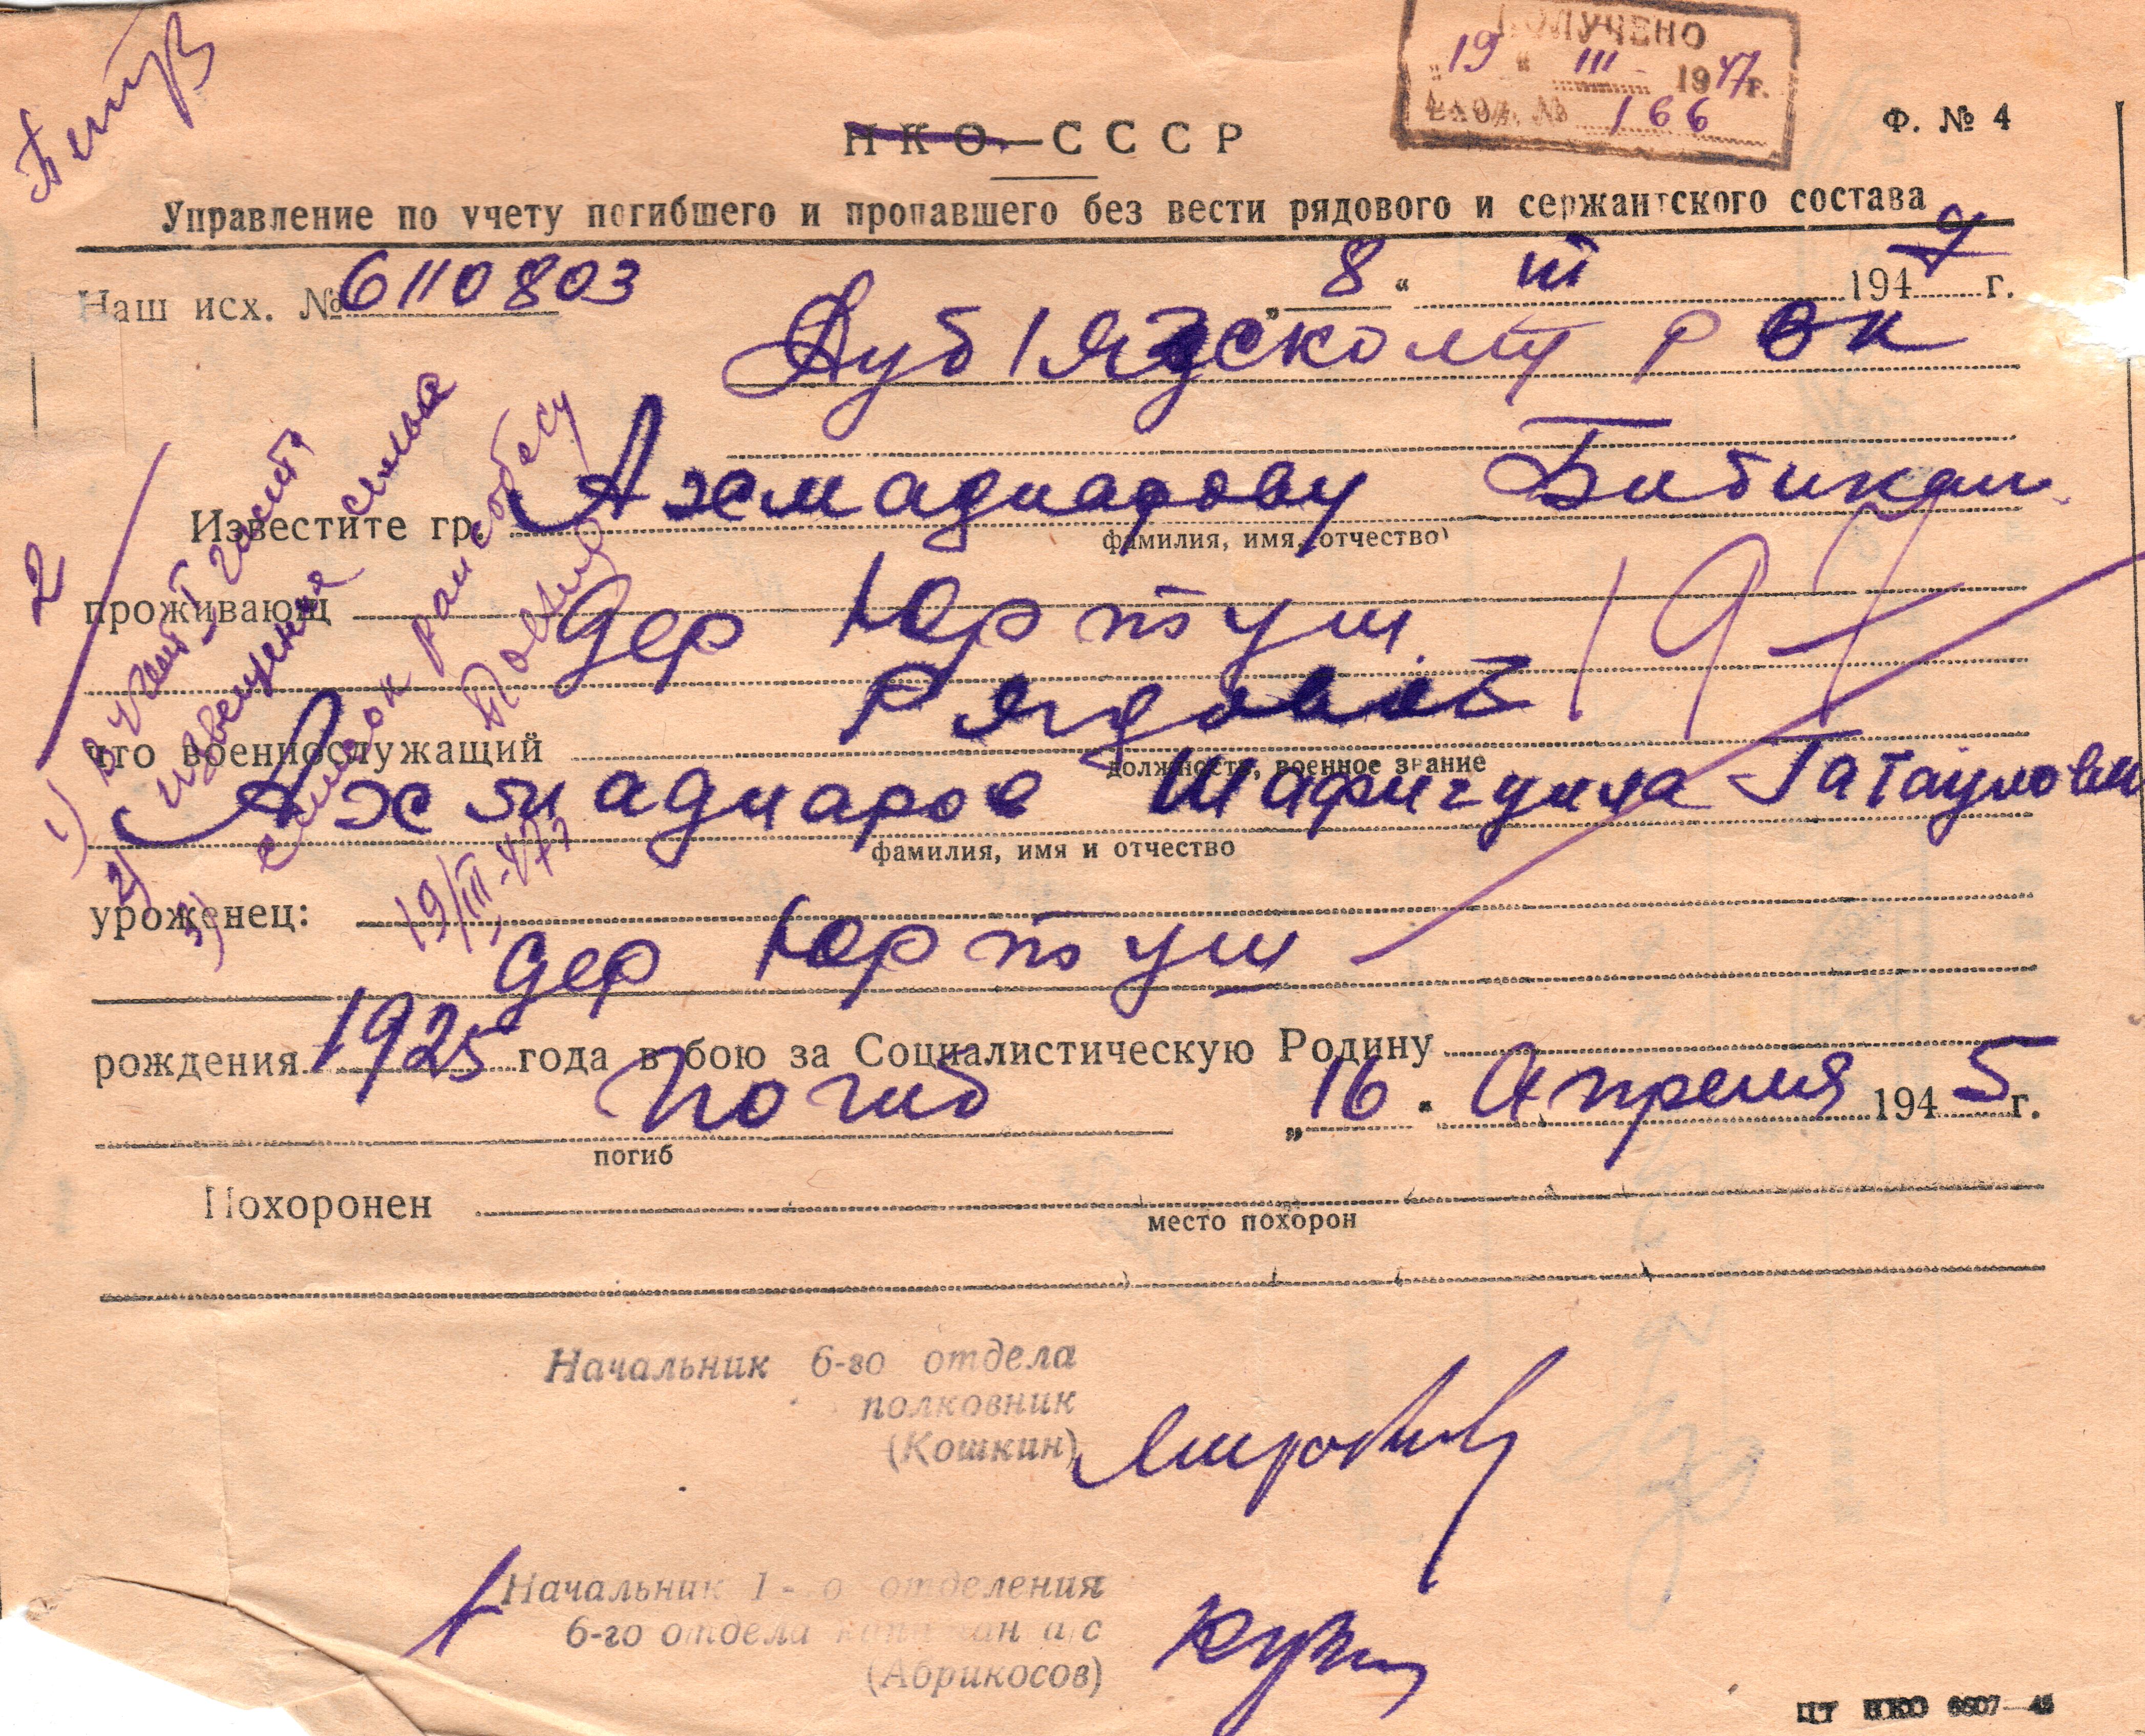 ПОЛУЧЕНО
„19“ III 1947г.
Входд. № 166
Ф. № 4
НКО СССР
Управление по учету погибшего и пропавшего без вести рядового и сержантского состава
Наш исх. № 6110803 „8“ III 1947 г.
Дуб'язскому РВК
Известите гр. Ахмадиарову Бибикам
фамилия, имя, отчество
проживающ
дер Юртуш 197
Рядовой
что военнослужащий
должность, военное звание
Ахмадиаров Шафигулла Гатаулови
фамилия, имя и отчество
уроженец:
дер Юртуш
рождения 1925 года в бою за Социалистическую Родину
погиб „16“ Апреля 1945 г.
погиб
Похоронен
место похорон
2
1) в учет. I часть
2) извещение
3) список рай собесу
19/III-47г
Начальник 6-го отдела
полковник
(Кошкин)
Начальник 1-о отделения
6-го отдела капитан а/с
(Абрикосов)
ЦТ НКО 6607—45